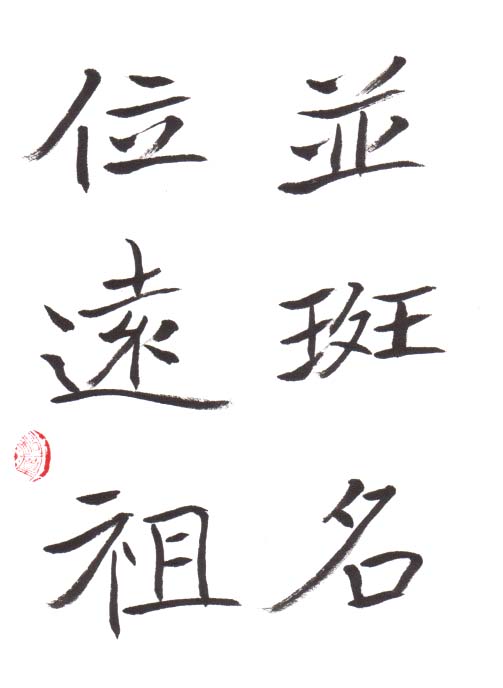 並斑名
位遠祖